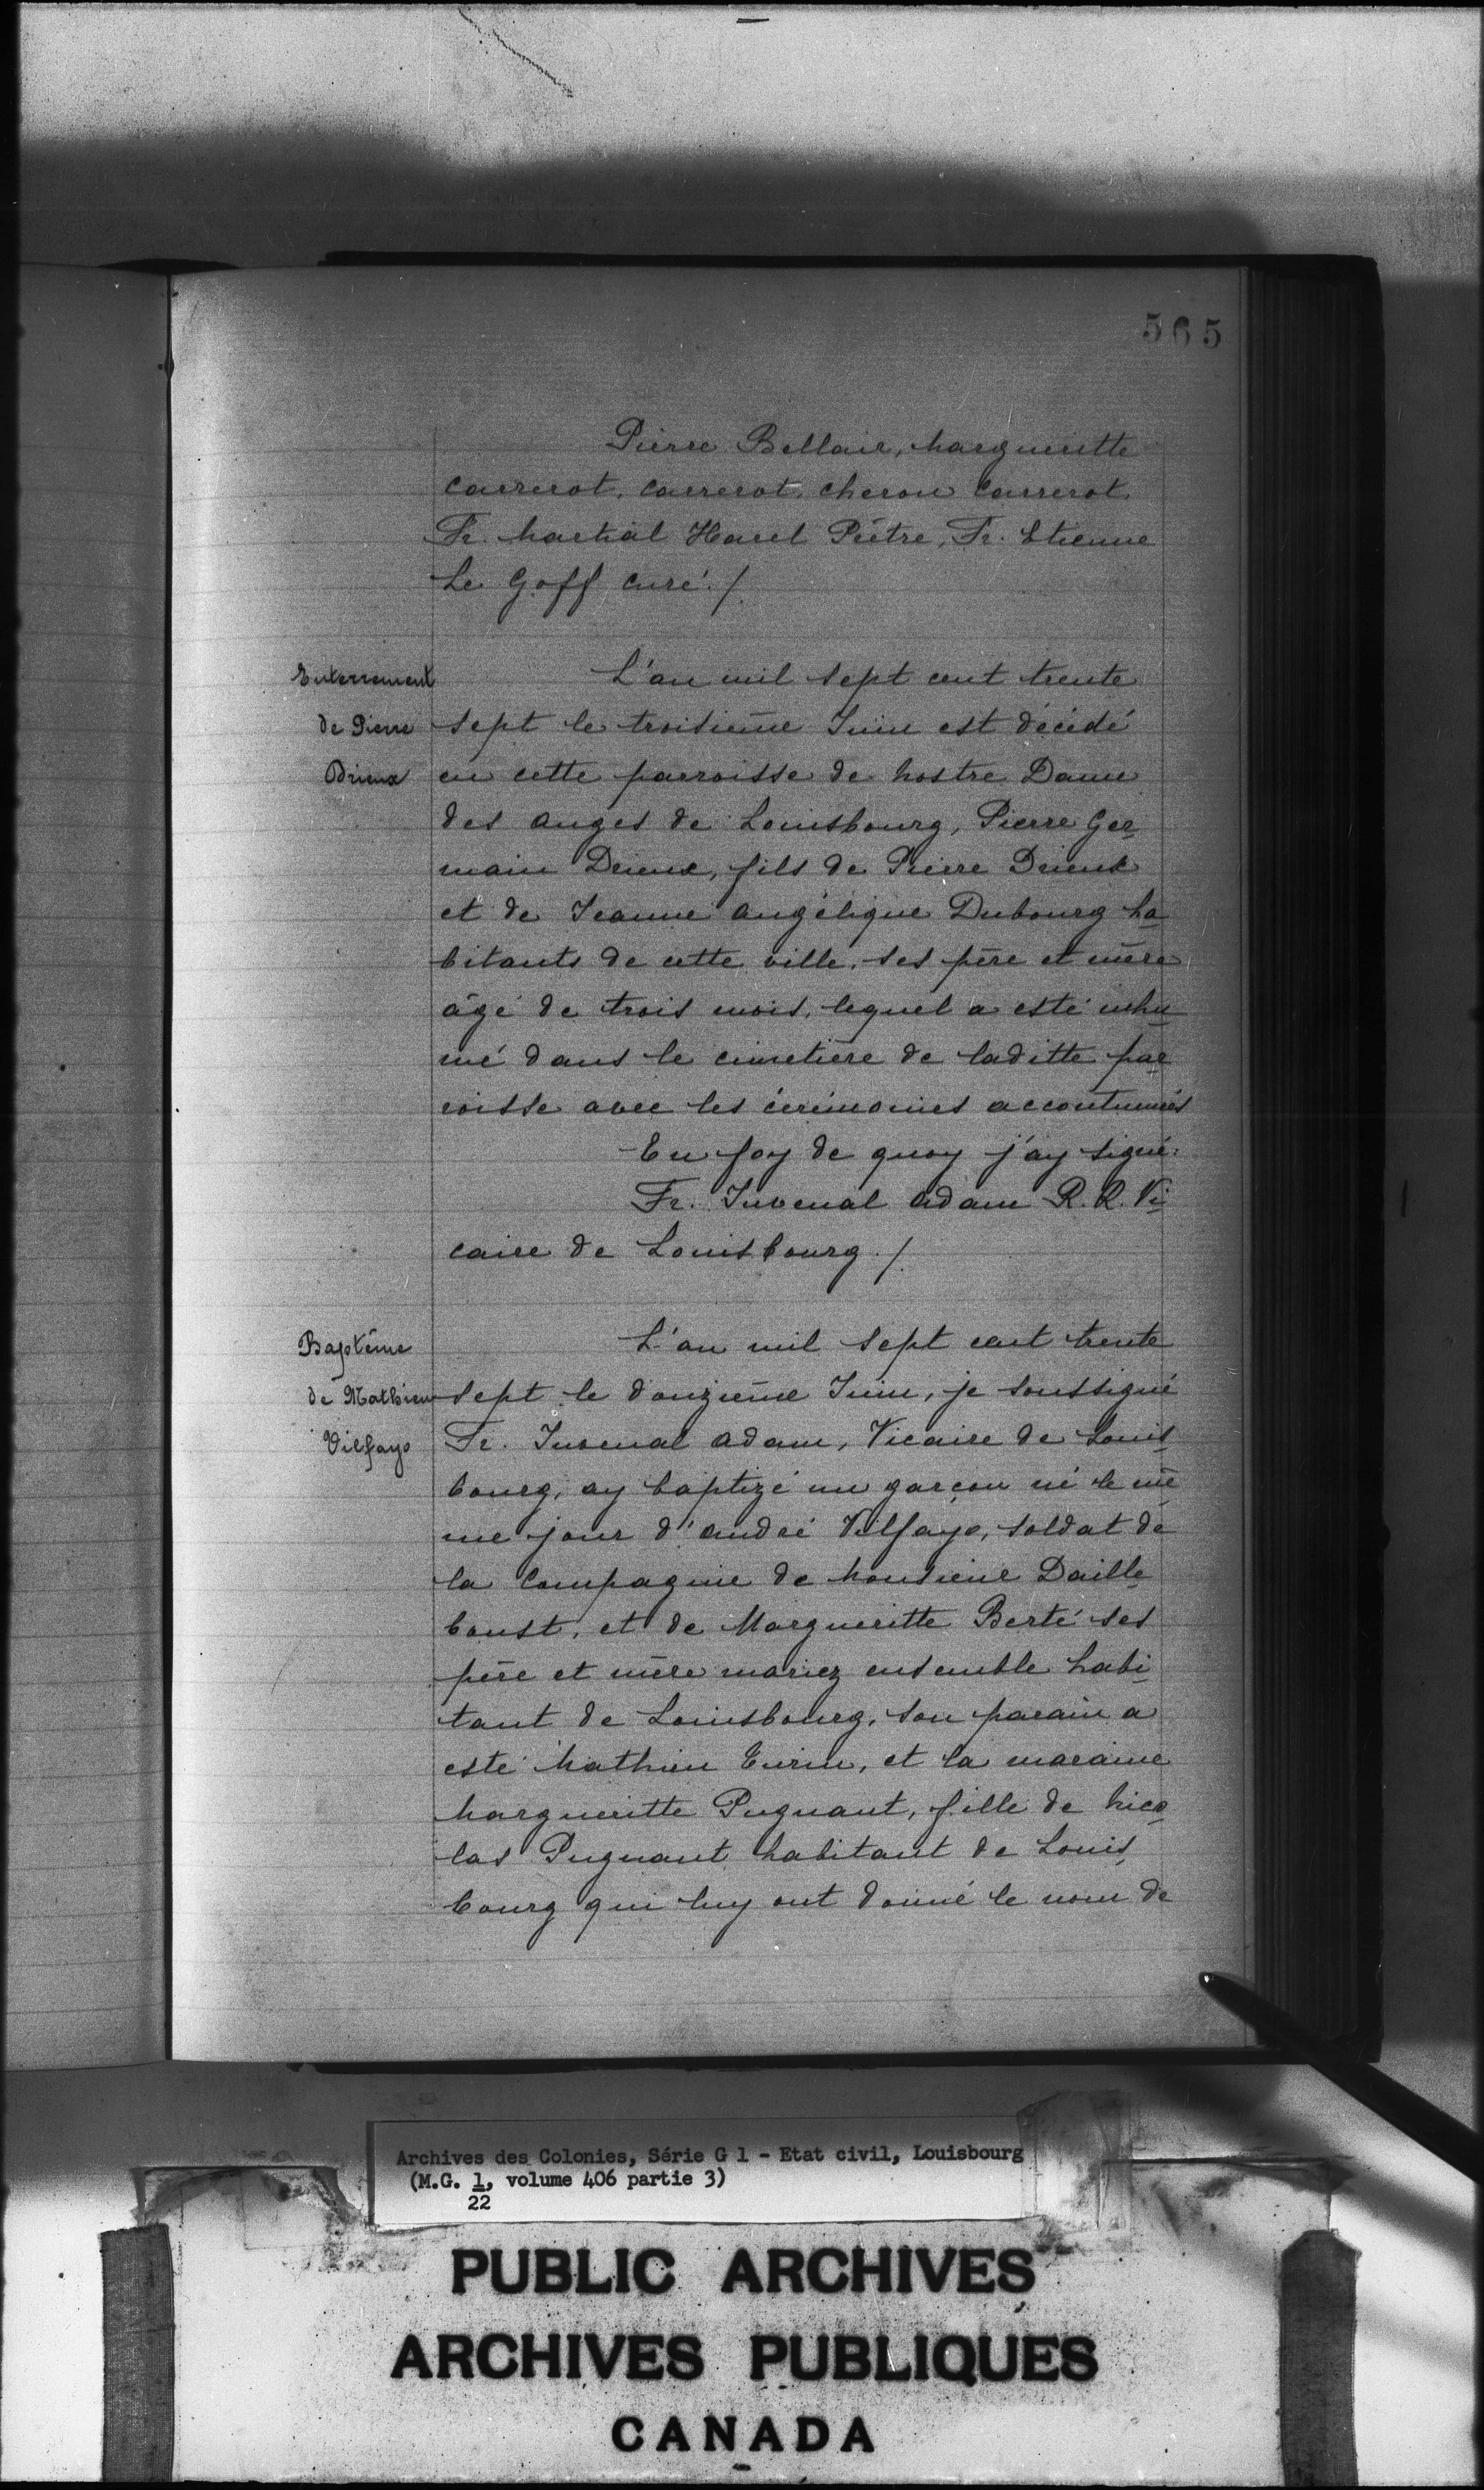 565
Pierre Bellair, Margueritte
Carrerot, Carrerot, Cheron Carrerot
Fr. Martial Harel Prêtre, Fr. Etienne
Le Goff curé./.
Enterrement
de Pierre
Drieux
L'an mil sept cent trente
sept le troisième Juin est décédé
en cette parroisse de Nostre Dame
des Anges de Louisbourg, Pierre Ger
main Drieux, fils de Pierre Drieux
et de Jeanne Angélique Dubourg ha
bitants de cette ville, ses père et mère
âgé de trois mois, lequel a esté inhu
mé dans le cimetière de laditte par
roisse avec les cérémonies accoutumés
En foy de quoy j'ay signé:
Fr. Juvenal Adam R. R. Vi
caire de Louisbourg./.
Baptême
de Mathieu
Vilfayo
L'an mil sept cent trente
sept le douzième Juin, je soussigné
Fr. Juvenal Adam, Vicaire de Louis
bourg, ay baptizé un garçon né le mê
me jour d'André Vilfayo, soldat de
la Compagnie de Monsieur Daille
boust, et de Margueritte Berté ses
père et mère mariez ensemble habi
tant de Louisbourg, son parain a
esté Mathieu Turin, et la maraine
Margueritte Pugnant, fille de Nico
las Pugnant habitant de Louis
bourg qui luy ont donné le nom de
Archives des Colonies, Série G 1 - Etat civil, Louisbourg
(M.G. 1, volume 406 partie 3)
22
PUBLIC ARCHIVES
ARCHIVES PUBLIQUES
CANADA